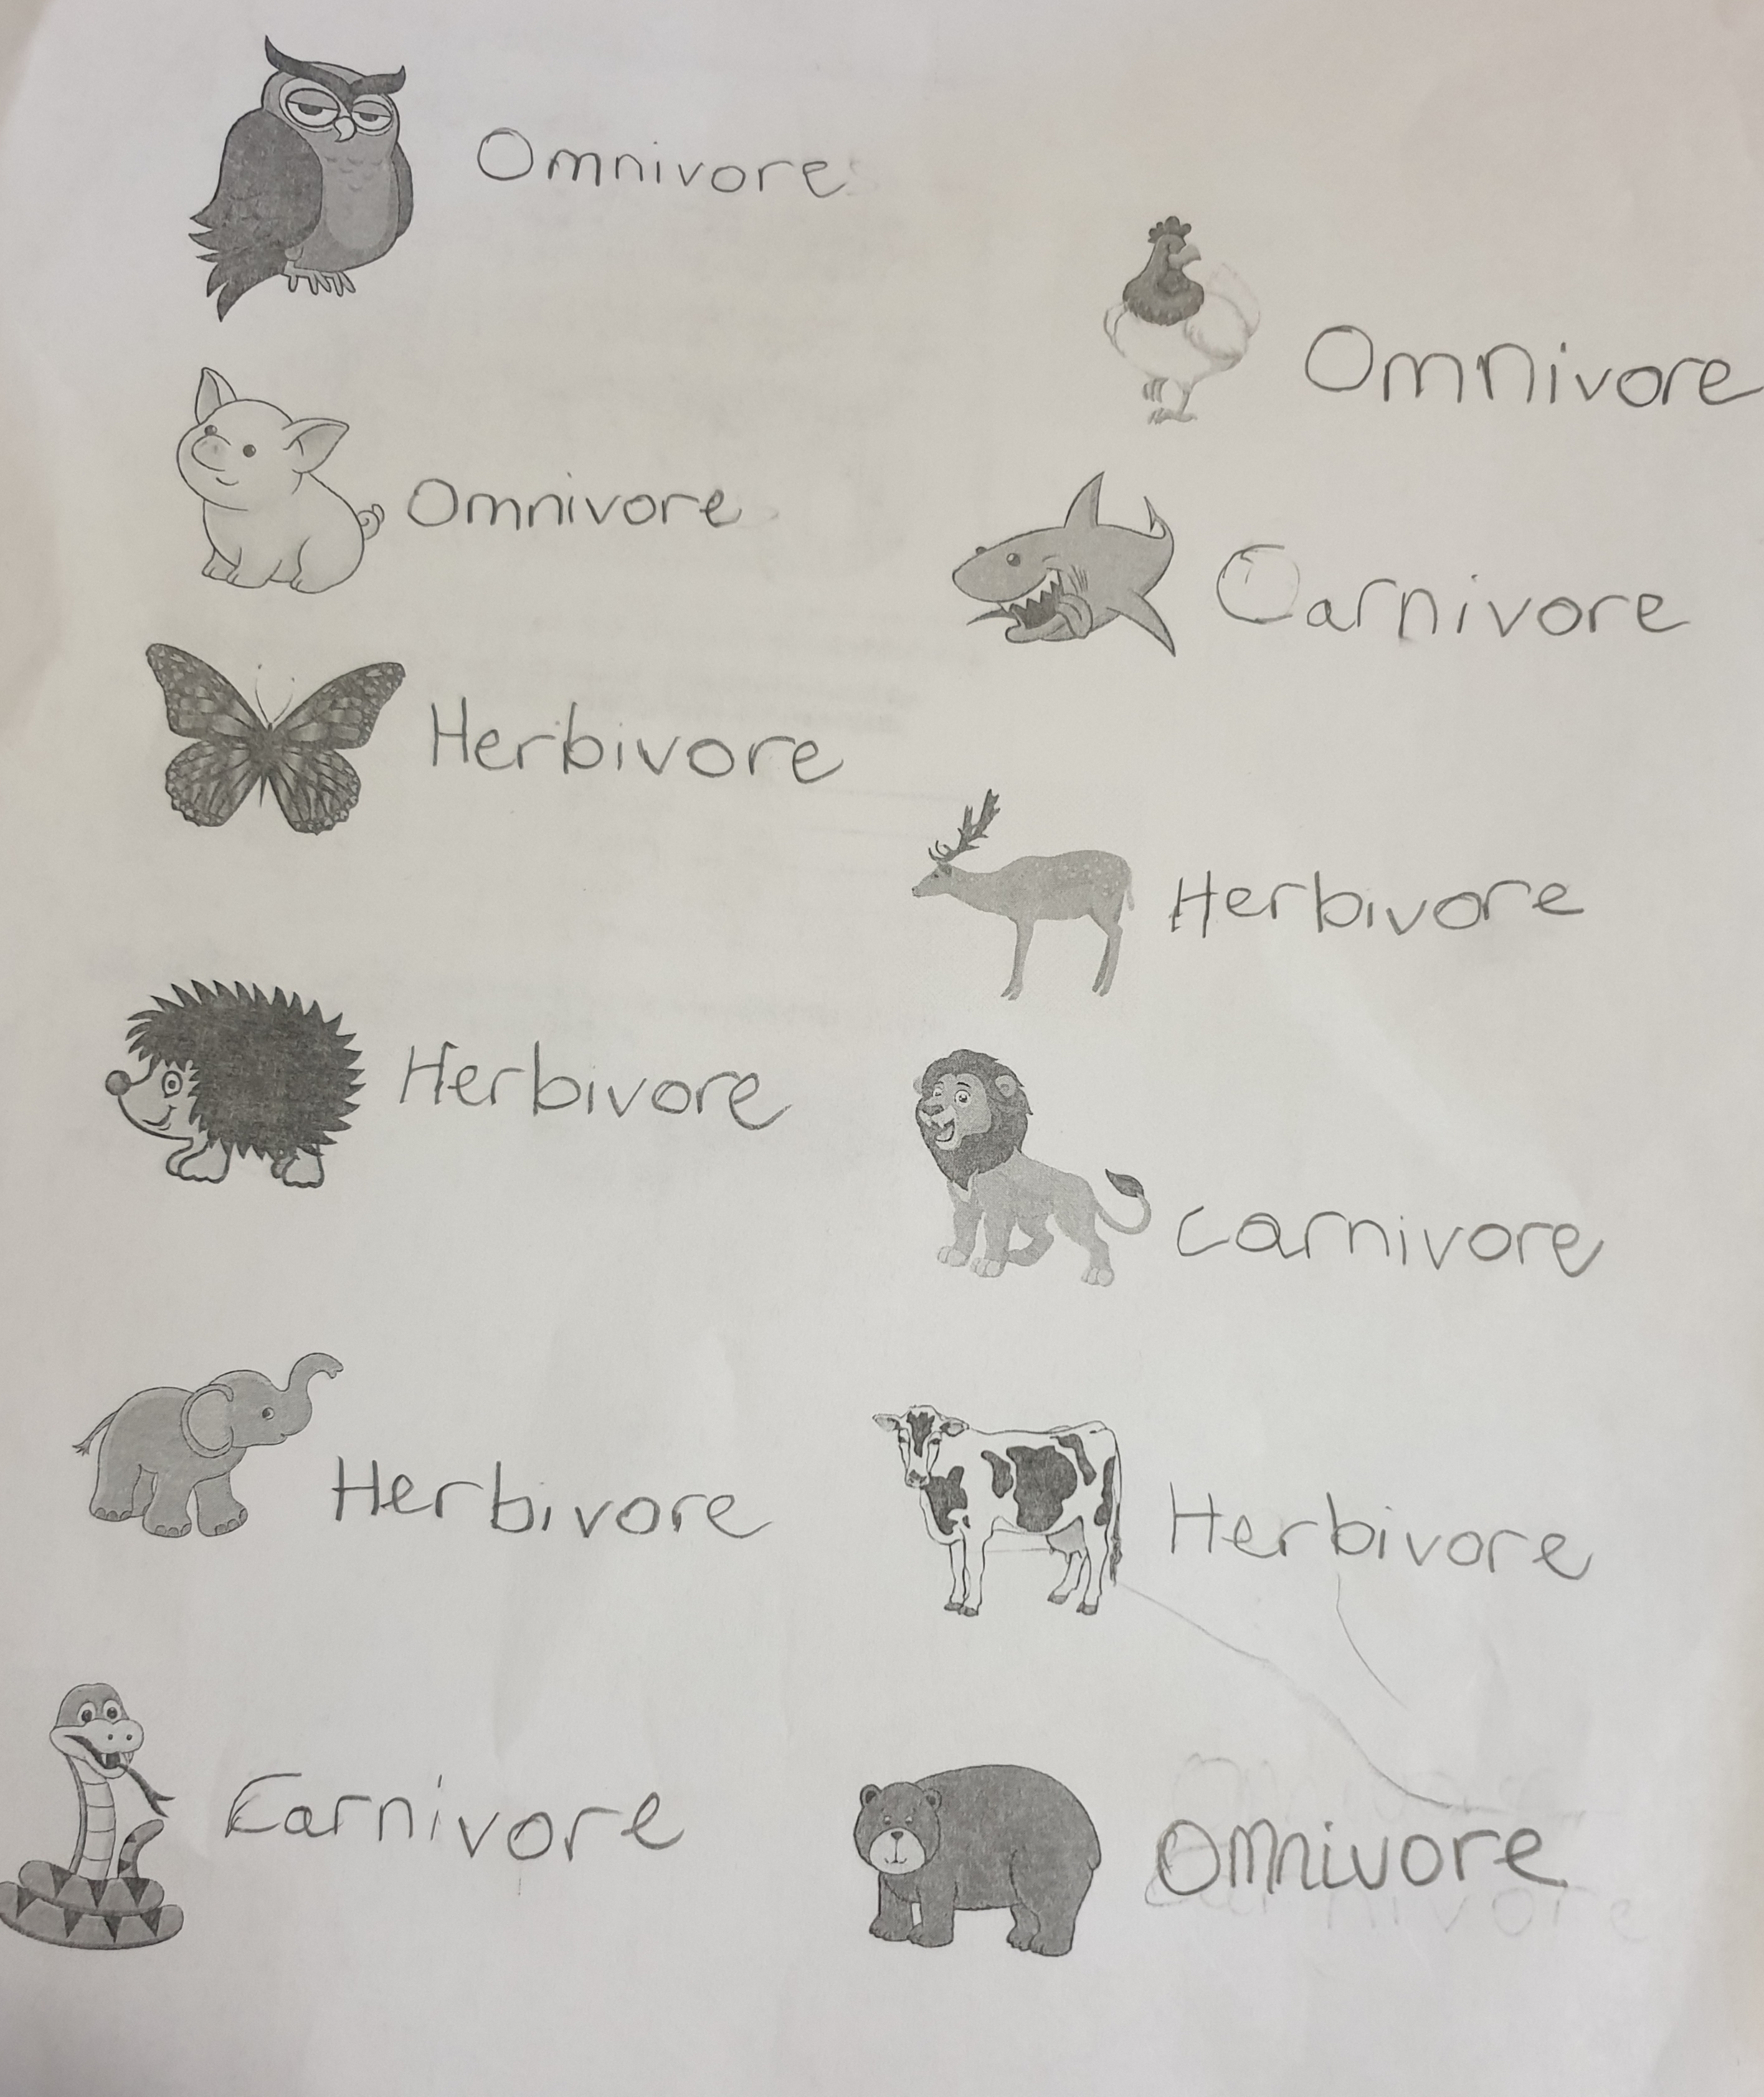 Omnivore
Omnivore
Omnivore
Carnivore
Herbivore
Herbivore
Herbivore
Carnivore
Herbivore
Herbivore
Carnivore
Omnivore